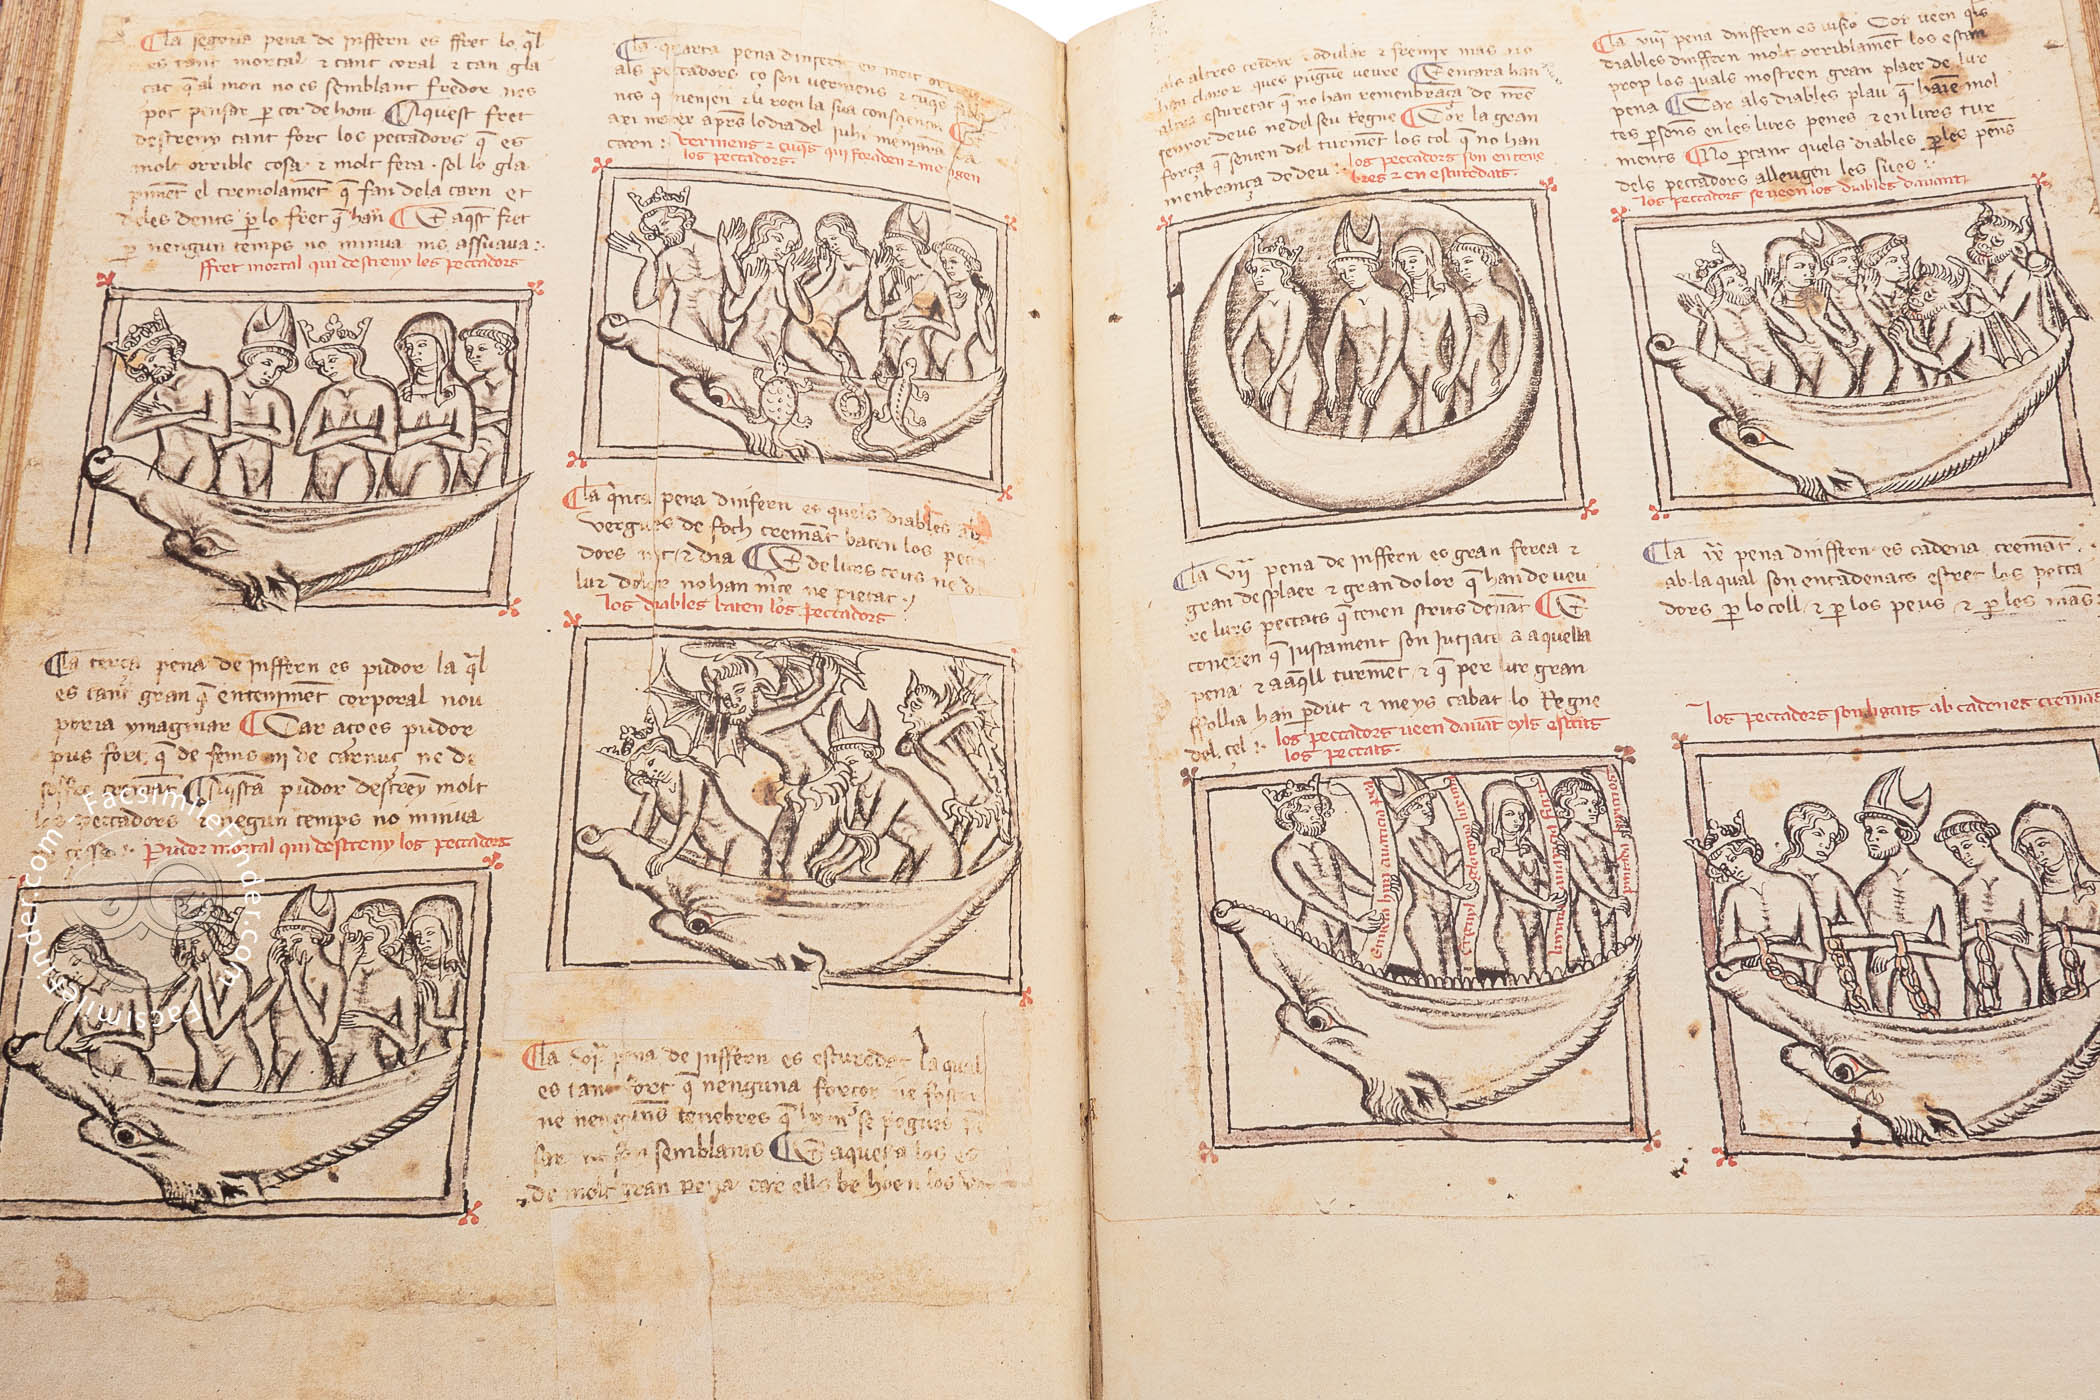 La segona pena de inffern es ffret lo q̄l
es tant mortal ⁊ tant coral ⁊ tan gla
çat q̄ al mon no es semblant fredor nes
pot pensar p̲ cor de hom ¶ Aquest fret
destreny tant fort los peccadors q̄ es
molt orrible cosa ⁊ molt fera · sol lo gla
el tremolament q̄ fan dela carn et
deles dents p̲ lo fret q̄ han ¶ E aq̄st fret
p̲ nengun temps no minva nis assuava :·
ffret mortal qui destreny los peccadors
La terça pena de inffern es pudor la q̄l
es tant gran q̄ enteniment corporal nou
poria ymaginar ¶ Car aço es pudor
pus fort q̄ de fems ni de carnuç ne de
soffre cremāt ¶ Aq̄sta pudor destreny molt
los peccadors ⁊ negun temps no minva
ne cessa :· Pudor mortal qui destreny los peccadors
La quarta pena dinfern
als peccadors ço son vermens ⁊ cuq̄s
q̄ menjen ⁊ roen la sua consciencia
apres lo dia del juhi menjara la
carn :· Vermens ⁊ cuq̄s qui foraden ⁊ mengen
los peccadors.
La q̄nta pena dinfern es quels diables ab
vergues de foch cremāt baten los pecca
dors nit ⁊ dia ¶ E de lurs ceus ne de
lur dolor no han m̄ce ne pietat ·/
los diables baten los peccadors
La vj. pena de inffern es escuredat la qual
es tant fort q̄ nenguna forçor ne foscor
ne nenguns tenebres q̄ hom se pogues pē
sar no son semblants ¶ E aquesta los es
de molt gran pena care ells be hoen los
als altres cridar ⁊ udular ⁊ fremir mas no
han claror ques pugue veure ¶ E encara han
altra escuretat q̄ no han remenbraça de nr̄e
senyor deus ne del seu Regne ¶ Cor la gran
força q̄ senten del turmēt los tol q̄ no han
menbrança de deu :· los peccadors son en tene
bres ⁊ en escuredats.
La vij pena de inffern es gran ferea ⁊
gran desplaer ⁊ gran dolor q̄ han de veu
re lurs peccats q̄ tenen scrits denāt ¶ E
coneren q̄ iustament son iutiats a aquella
pena ⁊ a aq̄ll turmēt ⁊ q̄ per lur gran
ffollia han p̲dut ⁊ meys cabat lo Regne
del cel :· los peccadors veen davāt eyls escrits
los peccats.
La viij pena dinffern es visio Cor veen q̄ls
diables dinffern molt orriblament los estan
prop los quals mostren gran plaer de lur
pena ¶ Car als diables plau q̄ haiē mol
tes p̲sons en les lurs penes ⁊ en lurs tur
ments ¶ No p̲tant quels diables p̲ les pens
dels peccadors alleugen les sues :·
los peccadors se veen los diables davant
La ix pena dinffern es cadena cremāt
ab la qual son encadenats estret los pecca
dors p̲ lo coll ⁊ p̲ los peus ⁊ p̲ les mans :
los peccadors son ligats ab cadenes cremās
FacsimileFinder.com